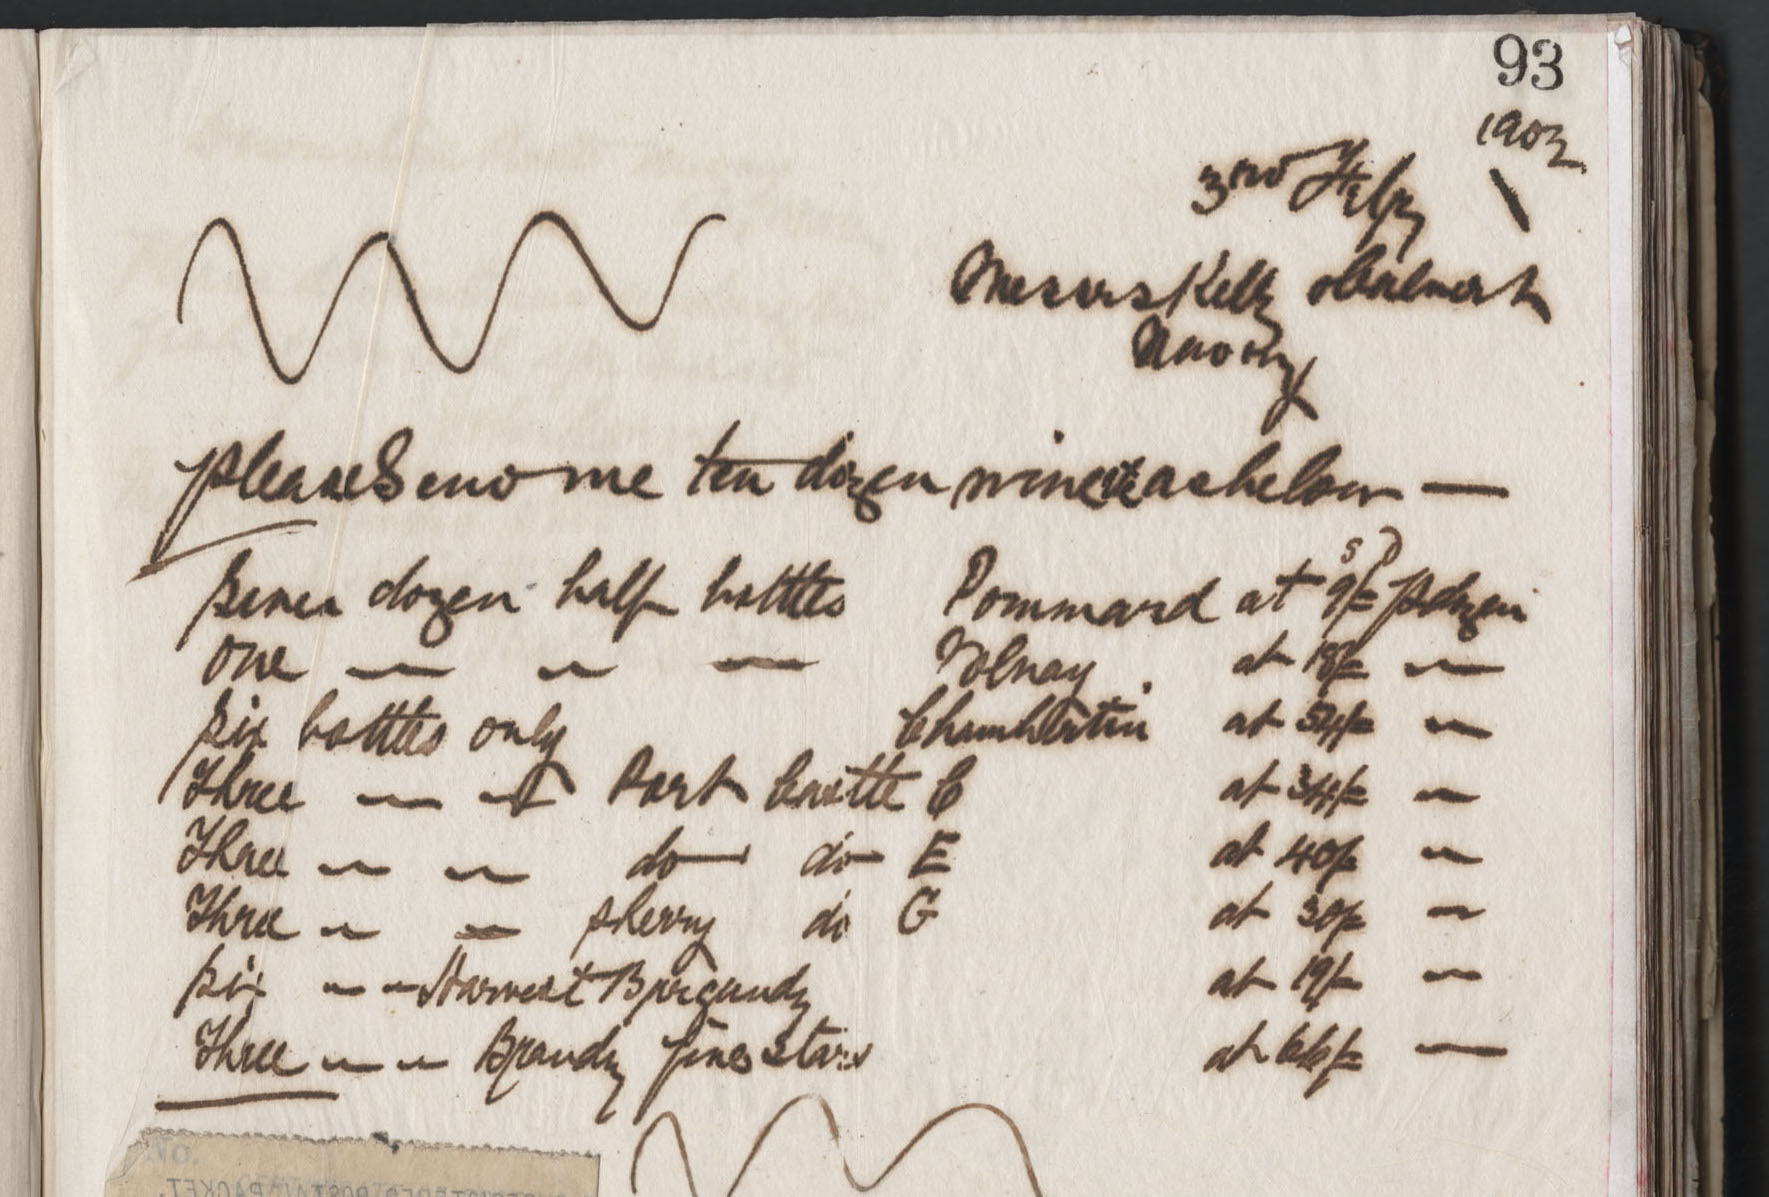 93
1902
3rd July
Messrs Kelly
please Send me ten dozen wine etc as below —
Seven dozen half bottles Pommard at 9/= p dozen
s D
One — " — Volnay at 18/= "
Six bottles only Chambertin at 54/= "
Three — " Port C at 34/= "
Three " " do do E at 40/= "
Three " " Sherry do G at 30/= "
Six " " Harvest Burgundy at 19/= "
Three " " Brandy fine 3 stars at 66/= —